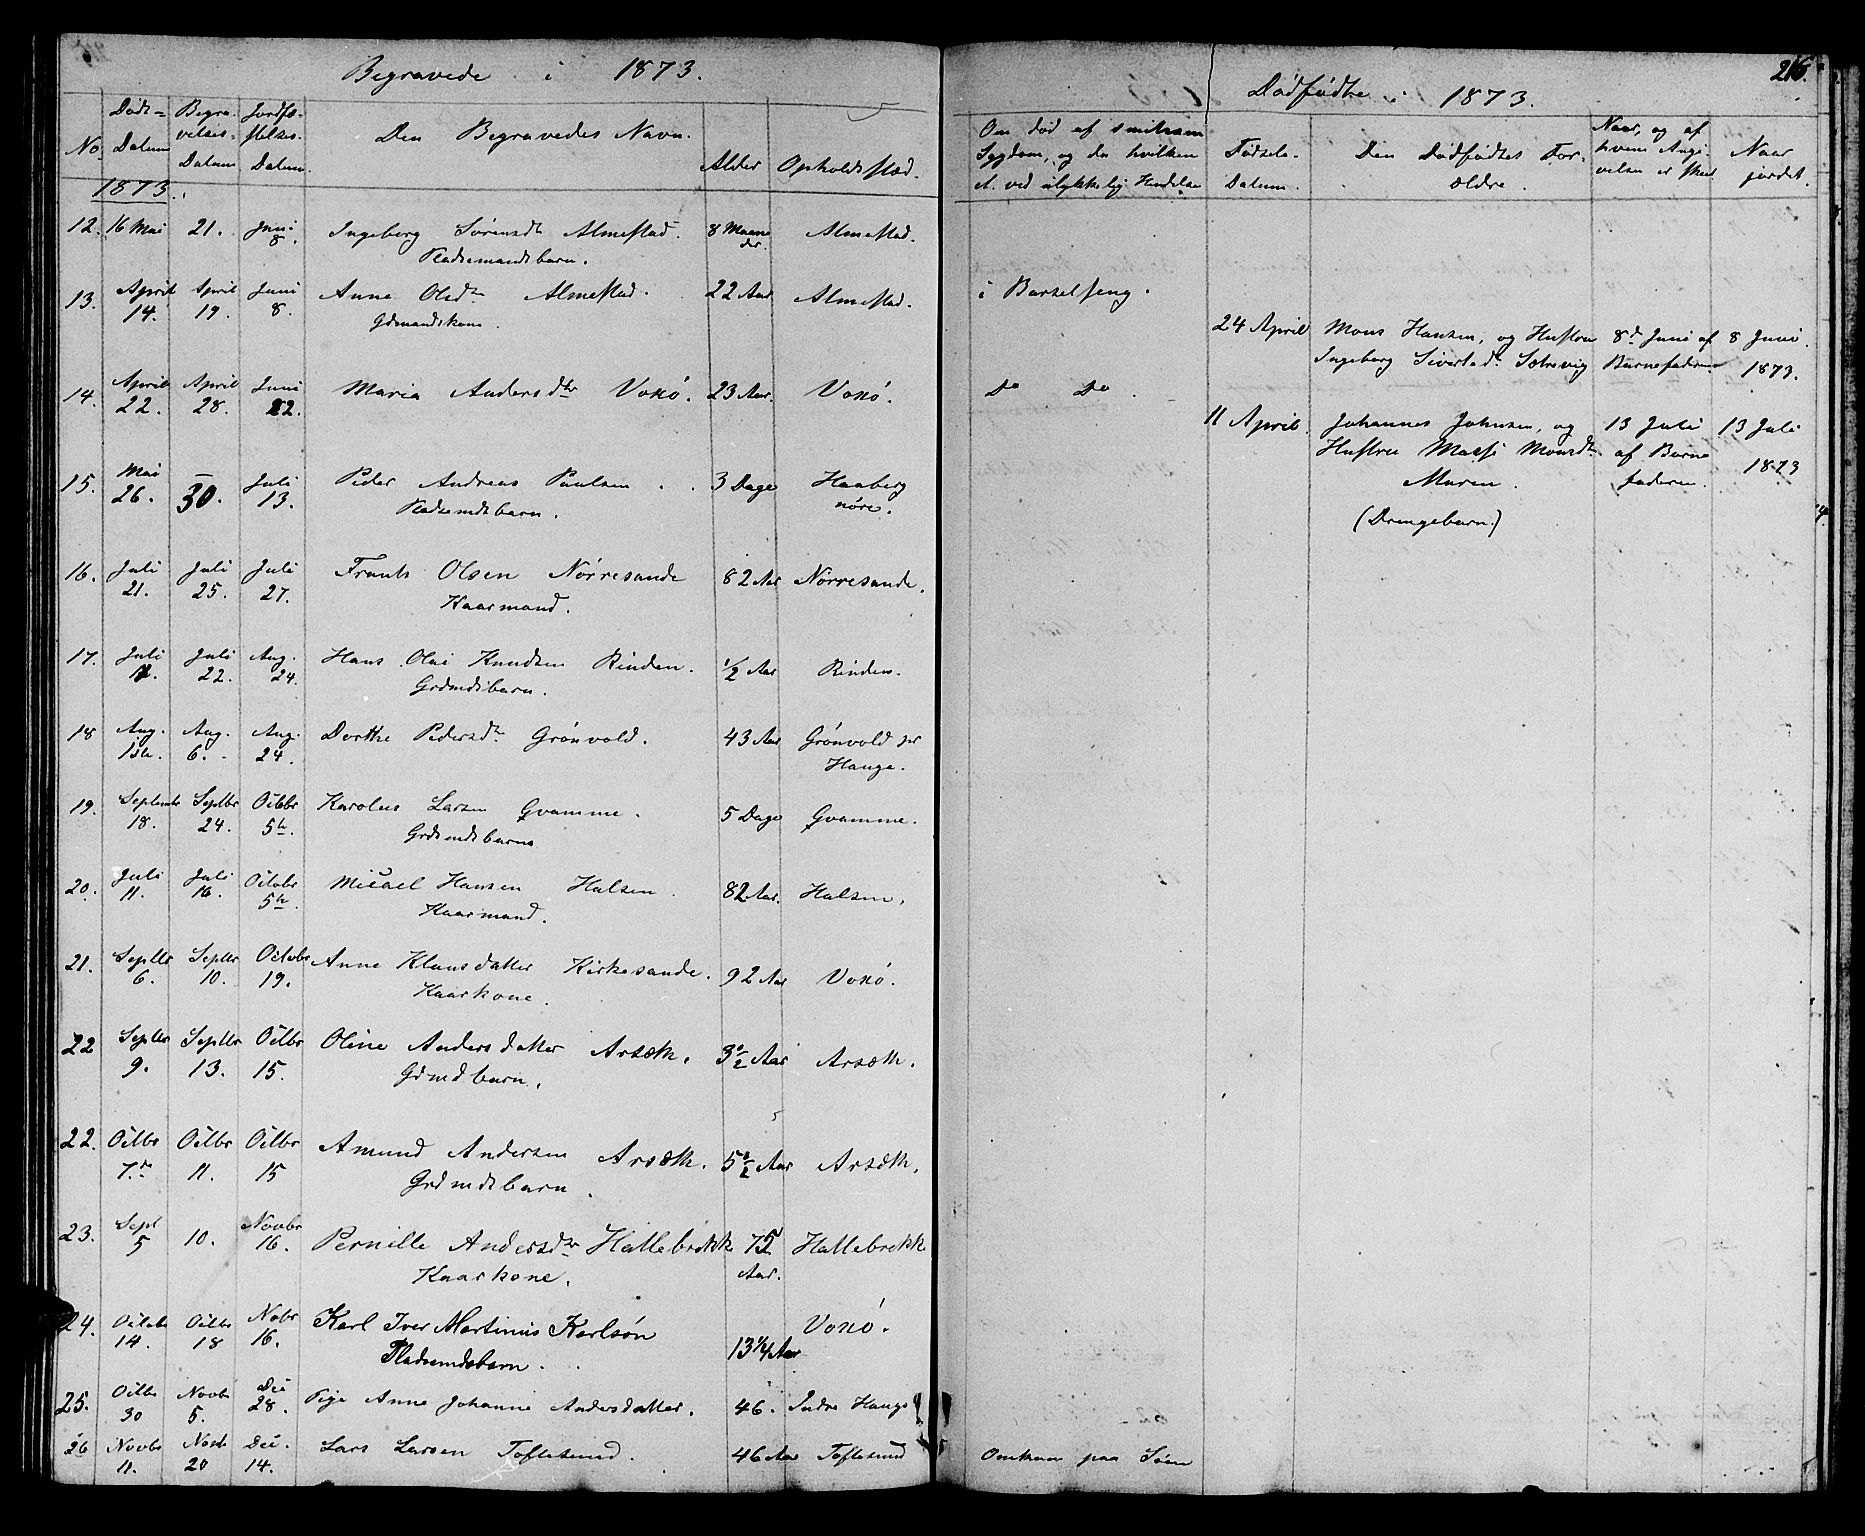 Begravede i 1873.
No. Døds-Datum Begravelses-Datum Jordfæstelses-Datum. Den Begravedes Navn. Alder Opholdssted.
1873.
12. 16 Mai 21. Juni 8. Ingeborg Sørensdt Almestad. 8 Maaneder. Almestad.
Pladsemandsbarn.
13. April 14. April 19. Juni 8. Anne Olsdtr Almestad. 22 Aar Almestad.
Gdmandskone.
14. April 22. April 28. Juni 22. Maria Andersdtr Voxø. 23 Aar. Voxø.
15. Mai 26. – 30. Juli 13. Peder Andreas Paulsen 3 Dage Haaberg
Pladsemdsbarn. nøre.
16. Juli 21. Juli 25. Juli 27. Frants Olsen Nørresande 82 Aar Nørresande.
Kaarmand.
17. Juli Juli 22. Aug. 24. Hans Olai Knudsen Rinden. ½ Aar Rinden.
Grdmdsbarn.
18 Aug. 1ste. Aug. 6. Aug. 24. Dorthe Pedersdtr Grønvold. 43 Aar Grønvold
Hauge.
19. Septembr 18. Septbr 24. Octbr 5te. Karolus Larsen Gvamme. 5 Dage Gvamme.
Grdsmdsbarn
20. Juli 11. Juli 16. Octobr 5te. Micael Hansen Halsen 82 Aar. Halsen.
Kaarmand.
21. Septbr 6. Septbr 10. Octobr 19. Anne Klausdatter Kirkesande. 92 Aar Voxø.
Kaarkone.
22 Septbr 9. Septbr 13. Octbr 15. Oline Andersdatter Arsæth. 3½ Aar Arsæth.
Gdmdbarn.
22. Octbr 7de Octbr 11. Octbr 15 Amund Andersen Arsæth. 5½ Aar Arsæth.
Grdmdsbarn.
23. Sept 5 10. Novbr 16. Pernille Andersdtr Hallebrekk 75 Aar. Hallebrekk
Kaarkone.
24. Octobr 14. Octbr 18 Nobr 16. Karl Iver Martinus Karlsøn 13¼ Aar Voxø.
Pladsemdsbarn.
25. Octbr 30 Novbr 5. Dec 28. Pige Anne Johanne Andersdatter. 46. Indre Hauge
26 Novbr 11. Novb 20 Dec. 14. Lars Larsen Toftesund. 46 Aar Toftesund
216.
Dødfødte i 1873.
Om død af smitsom
Sygdom, og da hvilken
el. ved ulykkelig Hændelse
Fødsels-
Datum.
Den Dødfødtes For-
ældre.
Naar, og af
hvem Angi-
velsen er skeet
Naar
jordet.
i Barselseng.
24 April Mons Hansen, og Hustru 8de Juni af 8 Juni.
Ingeborg Sivertsdtr Sætrevig Barnefaderen 1873.
Do Do.
11 April. Johannes Johnsen, og 13 Juli 13 Juli
Hustru Massi Monsdtr af Barne 1873
Muren. faderen.
(Drengebarn.)
Omkom paa Søen